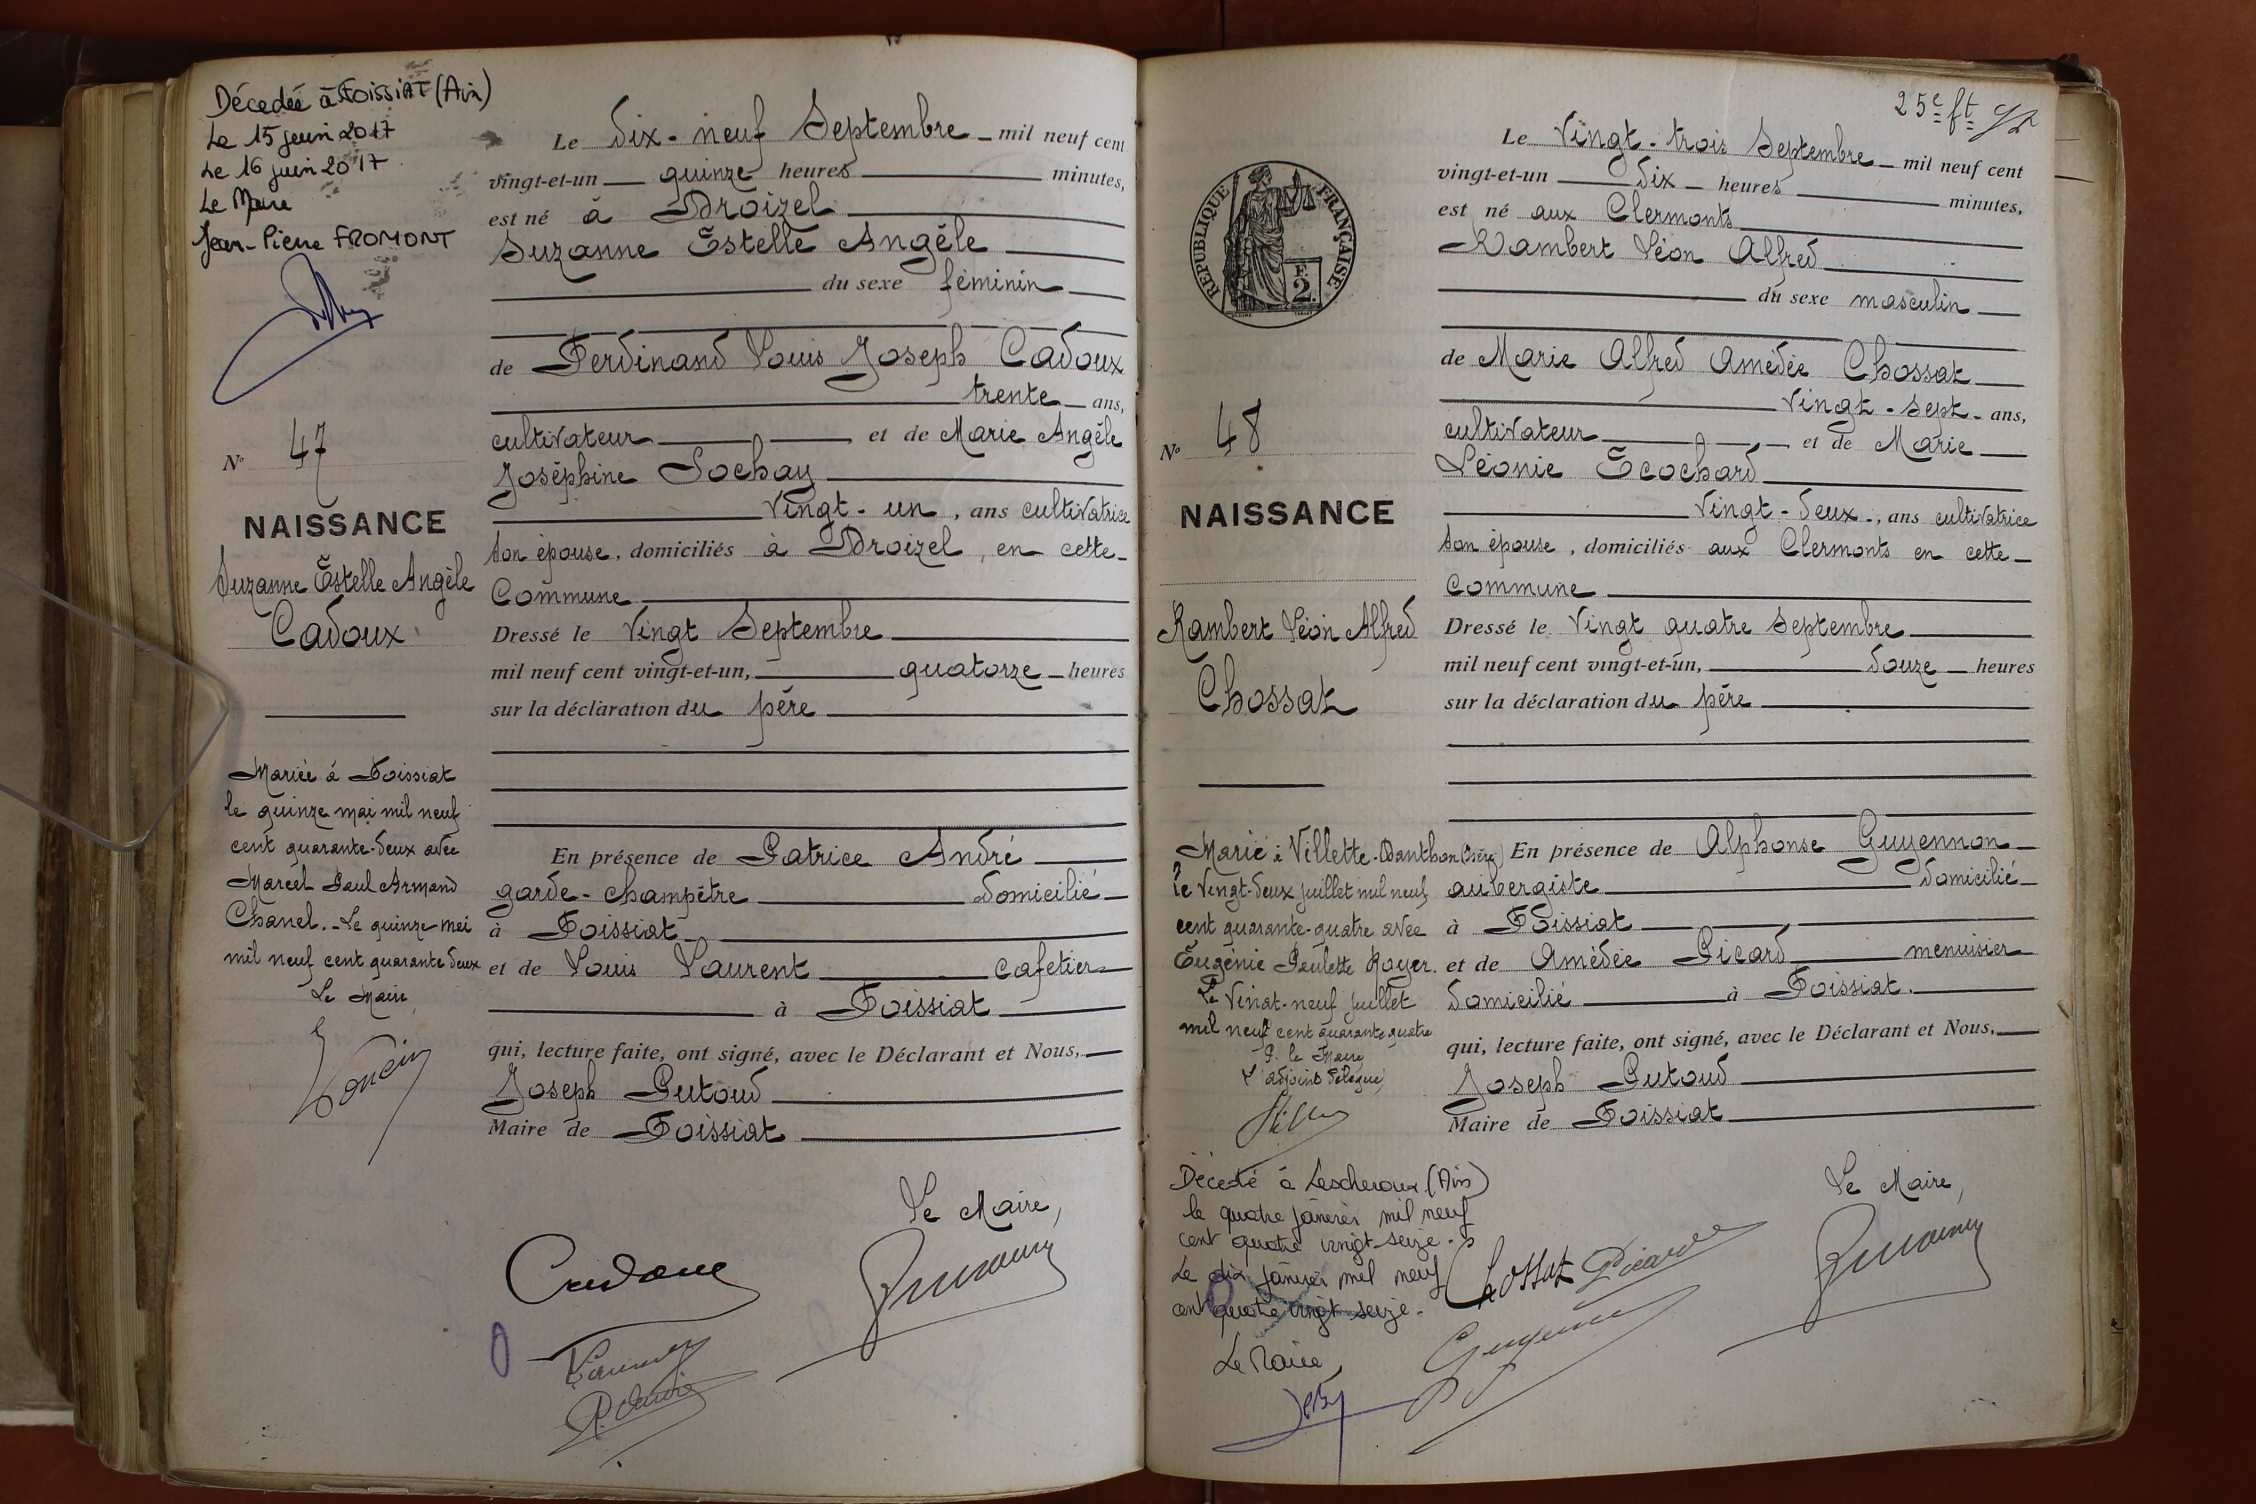 Décedée à FOISSIAT (Ain)
Le 15 juin 2017
Le 16 juin 2017
Le Maire
Jean-Pierre FROMONT
N° 47
NAISSANCE
Suzanne Estelle Angèle
Cadoux
Mariée à Foissiat
le quinze mai mil neuf
cent quarante-deux avec
Marcel Paul Armand
Chanel. - Le quinze mai
mil neuf cent quarante deux
Le Maire
Le dix-neuf Septembre mil neuf cent
vingt-et-un quinze heures minutes,
est né à Broizel
Suzanne Estelle Angèle
du sexe féminin
de Ferdinand Louis Joseph Cadoux
trente ans,
cultivateur et de Marie Angèle
Joséphine Sochay
vingt-un, ans cultivatrice
son épouse, domiciliés à Broizel, en cette
Commune
Dressé le vingt Septembre
mil neuf cent vingt-et-un, quatorze heures
sur la déclaration du père
En présence de Patrice André
garde-champêtre domicilié
à Foissiat
et de Louis Laurent cafetier
à Foissiat
qui, lecture faite, ont signé, avec le Déclarant et Nous,
Joseph Putoud
Maire de Foissiat
Le Maire,
25e ft
REPUBLIQUE FRANÇAISE
F.
2.
N° 48
NAISSANCE
Rambert Léon Alfred
Chossat
Marié à Villette-d'Anthon (Isère)
le vingt-deux juillet mil neuf
cent quarante-quatre avec
Eugénie Paulette Royer.
Le Vingt-neuf juillet
mil neuf cent quarante quatre
P. le Maire
L'adjoint délégué,
Décédé à Lescheroux (Ain)
le quatre janvier mil neuf
cent quatre vingt-seize.
Le dix janvier mil neuf
cent quatre vingt seize.
Le Maire,
Le vingt-trois Septembre mil neuf cent
vingt-et-un dix heures minutes,
est né aux Clermonts
Rambert Léon Alfred
du sexe masculin
de Marie Alfred Amédée Chossat
vingt-sept ans,
cultivateur et de Marie
Léonie Ecochard
vingt-deux, ans cultivatrice
son épouse, domiciliés aux Clermonts en cette
commune
Dressé le vingt quatre septembre
mil neuf cent vingt-et-un, douze heures
sur la déclaration du père
En présence de Alphonse Guyennon
aubergiste domicilié
à Foissiat
et de Amédée Picard menuisier
domicilié à Foissiat.
qui, lecture faite, ont signé, avec le Déclarant et Nous,
Joseph Putoud
Maire de Foissiat
Le Maire,
Chossat